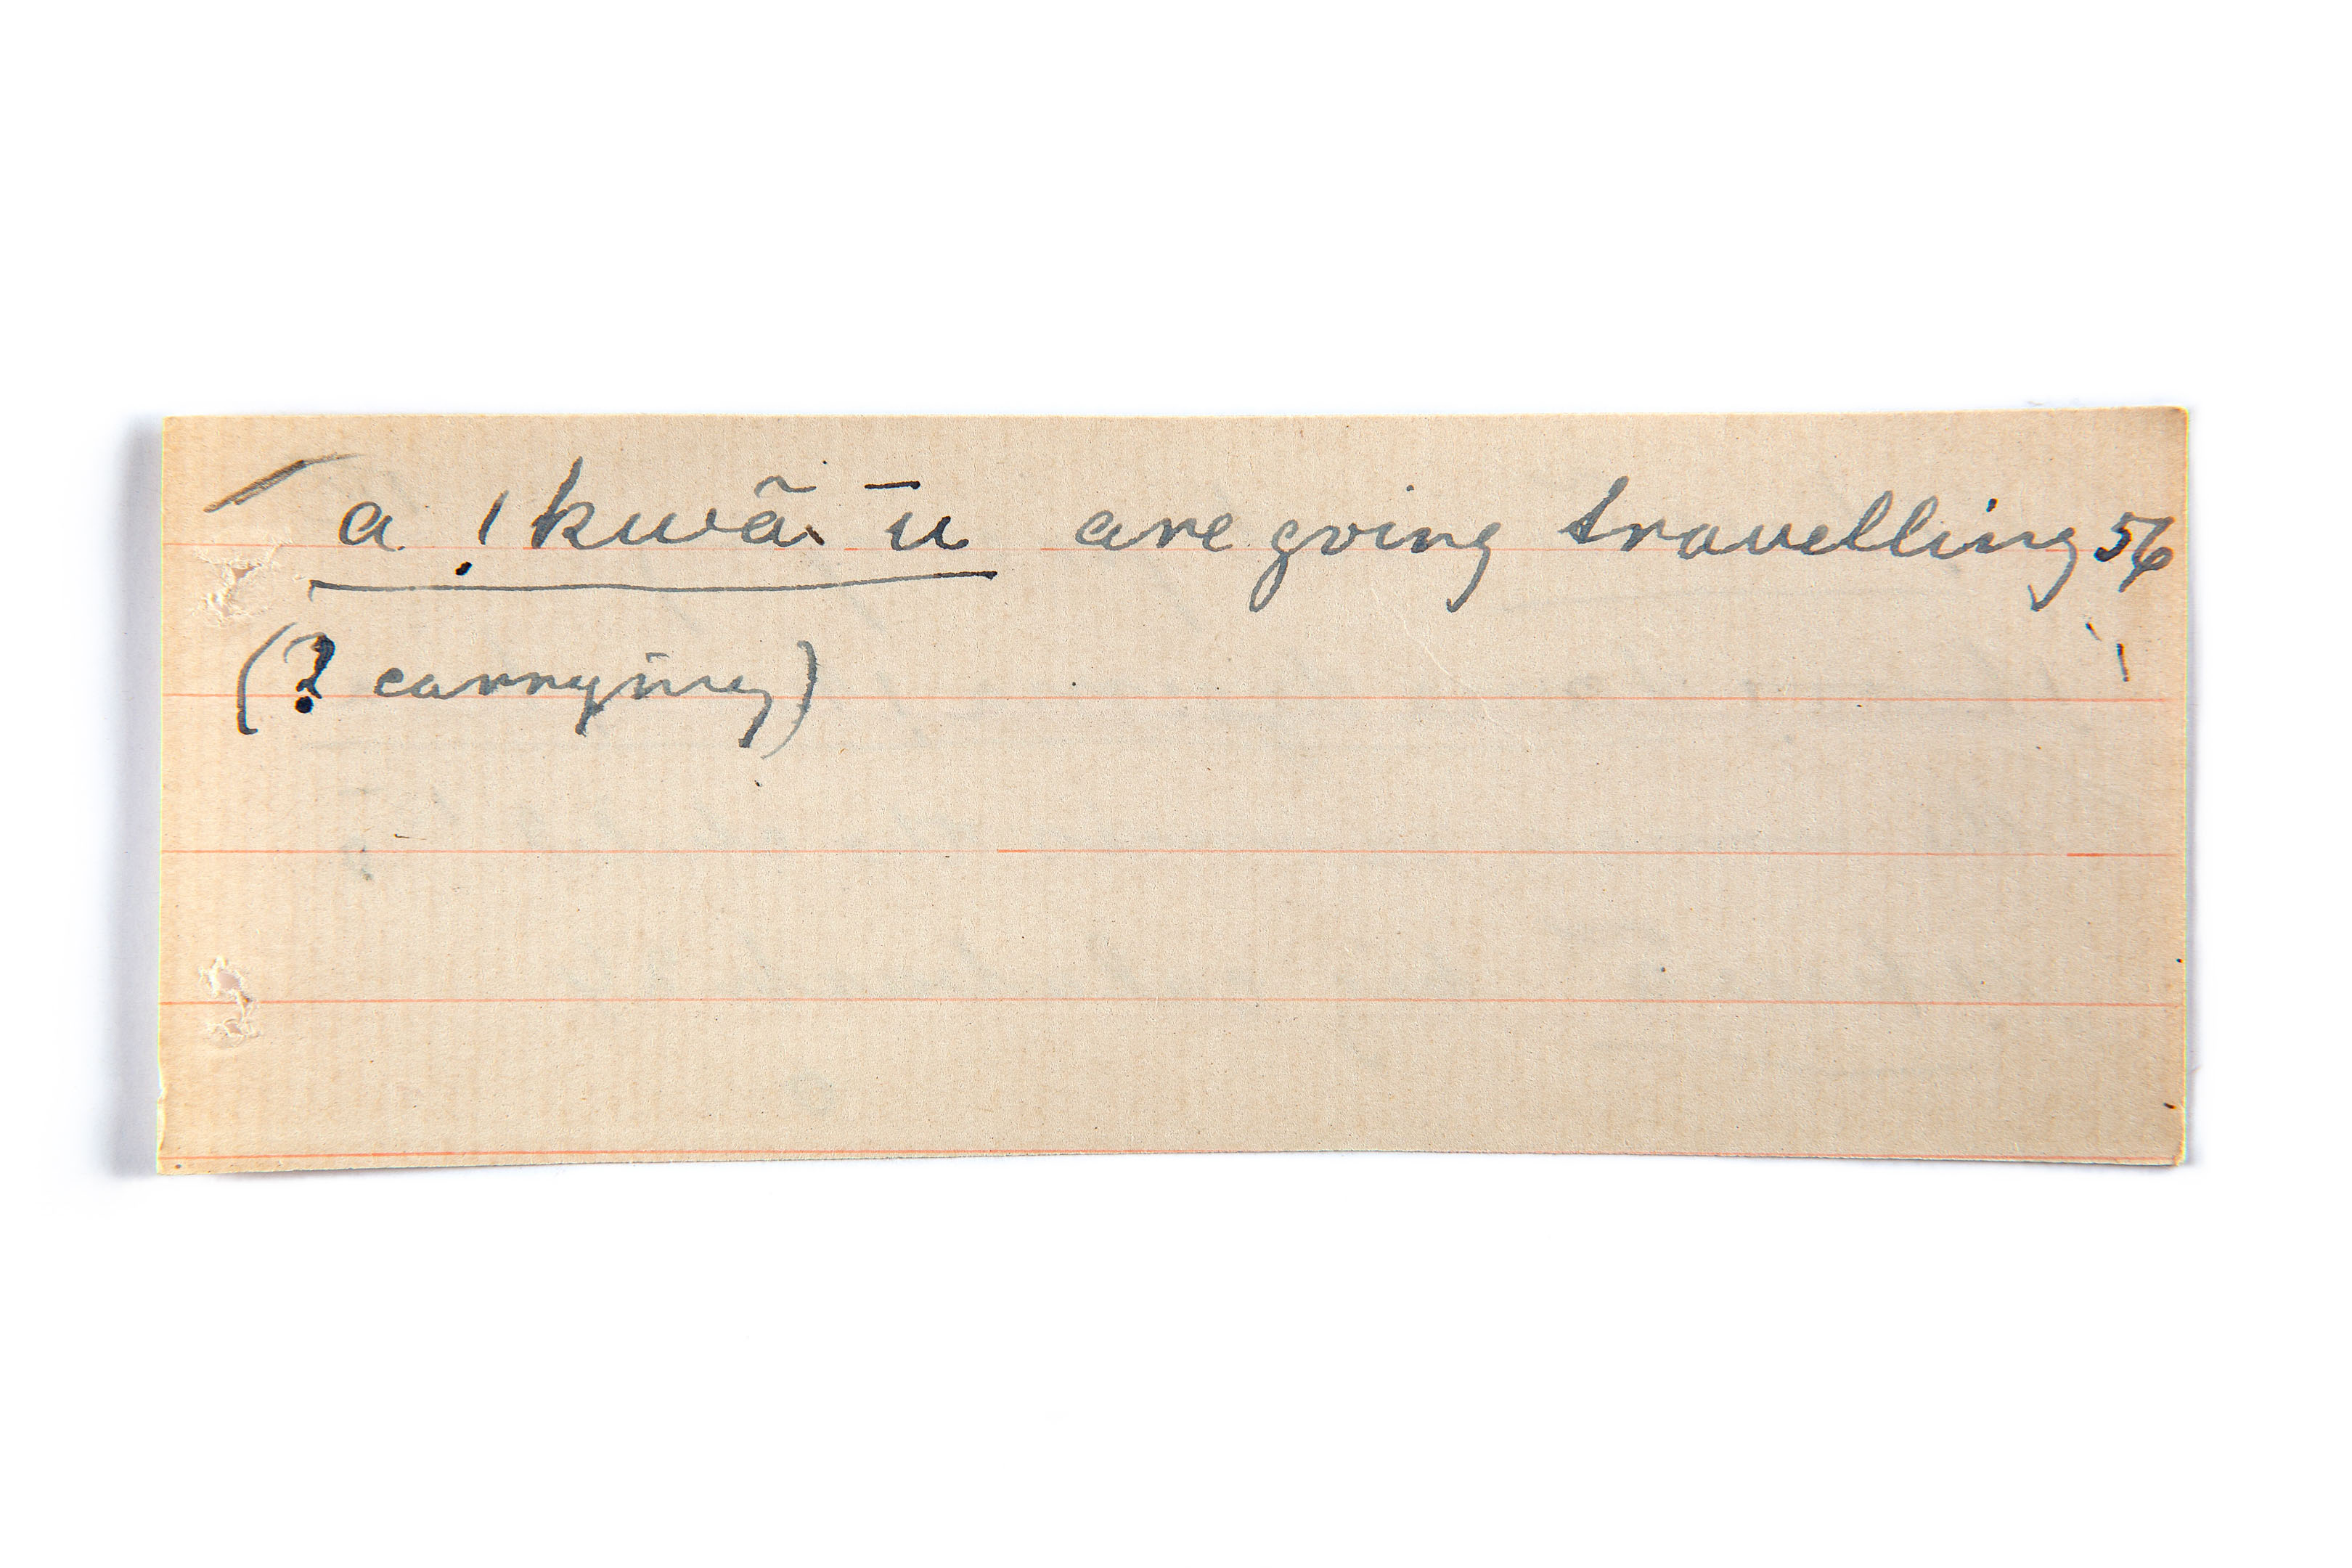 a !kwã ū are going travelling 56
(? carrying)